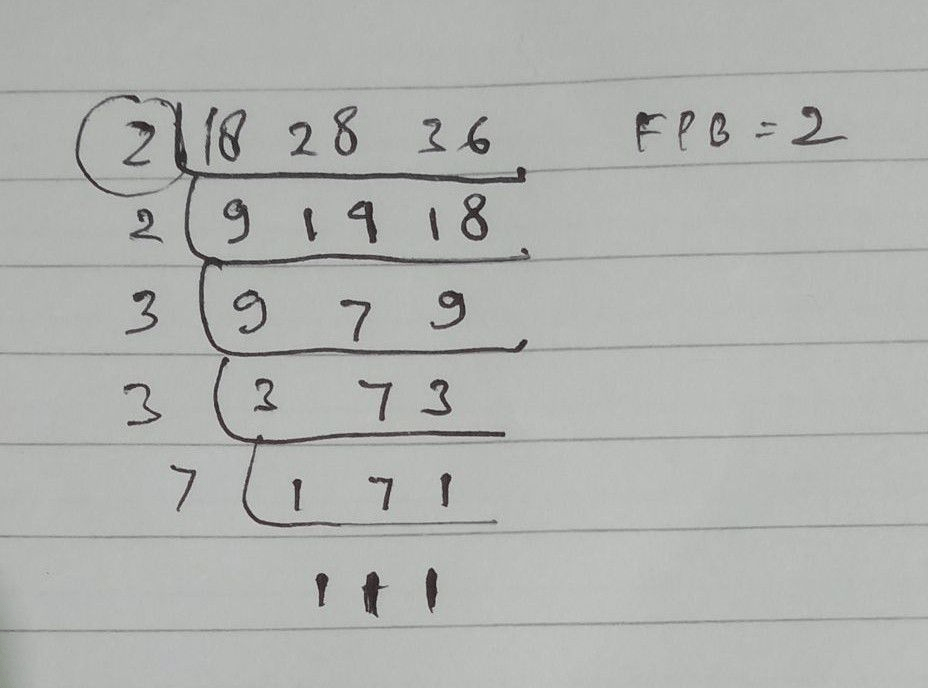 2 18 28 36 FPB = 2
2 9 14 18
3 9 7 9
3 3 7 3
7 1 7 1
1 1 1